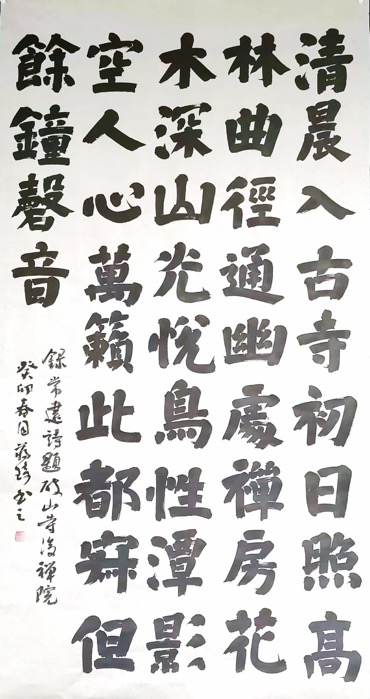 清晨入古寺初日照高
林曲徑通幽處禪房花
木深山光悅鳥性潭影
空人心萬籟此都寂但
餘鐘磬音
錄常建詩題破山寺後禪院
癸卯春月蔣錡書之